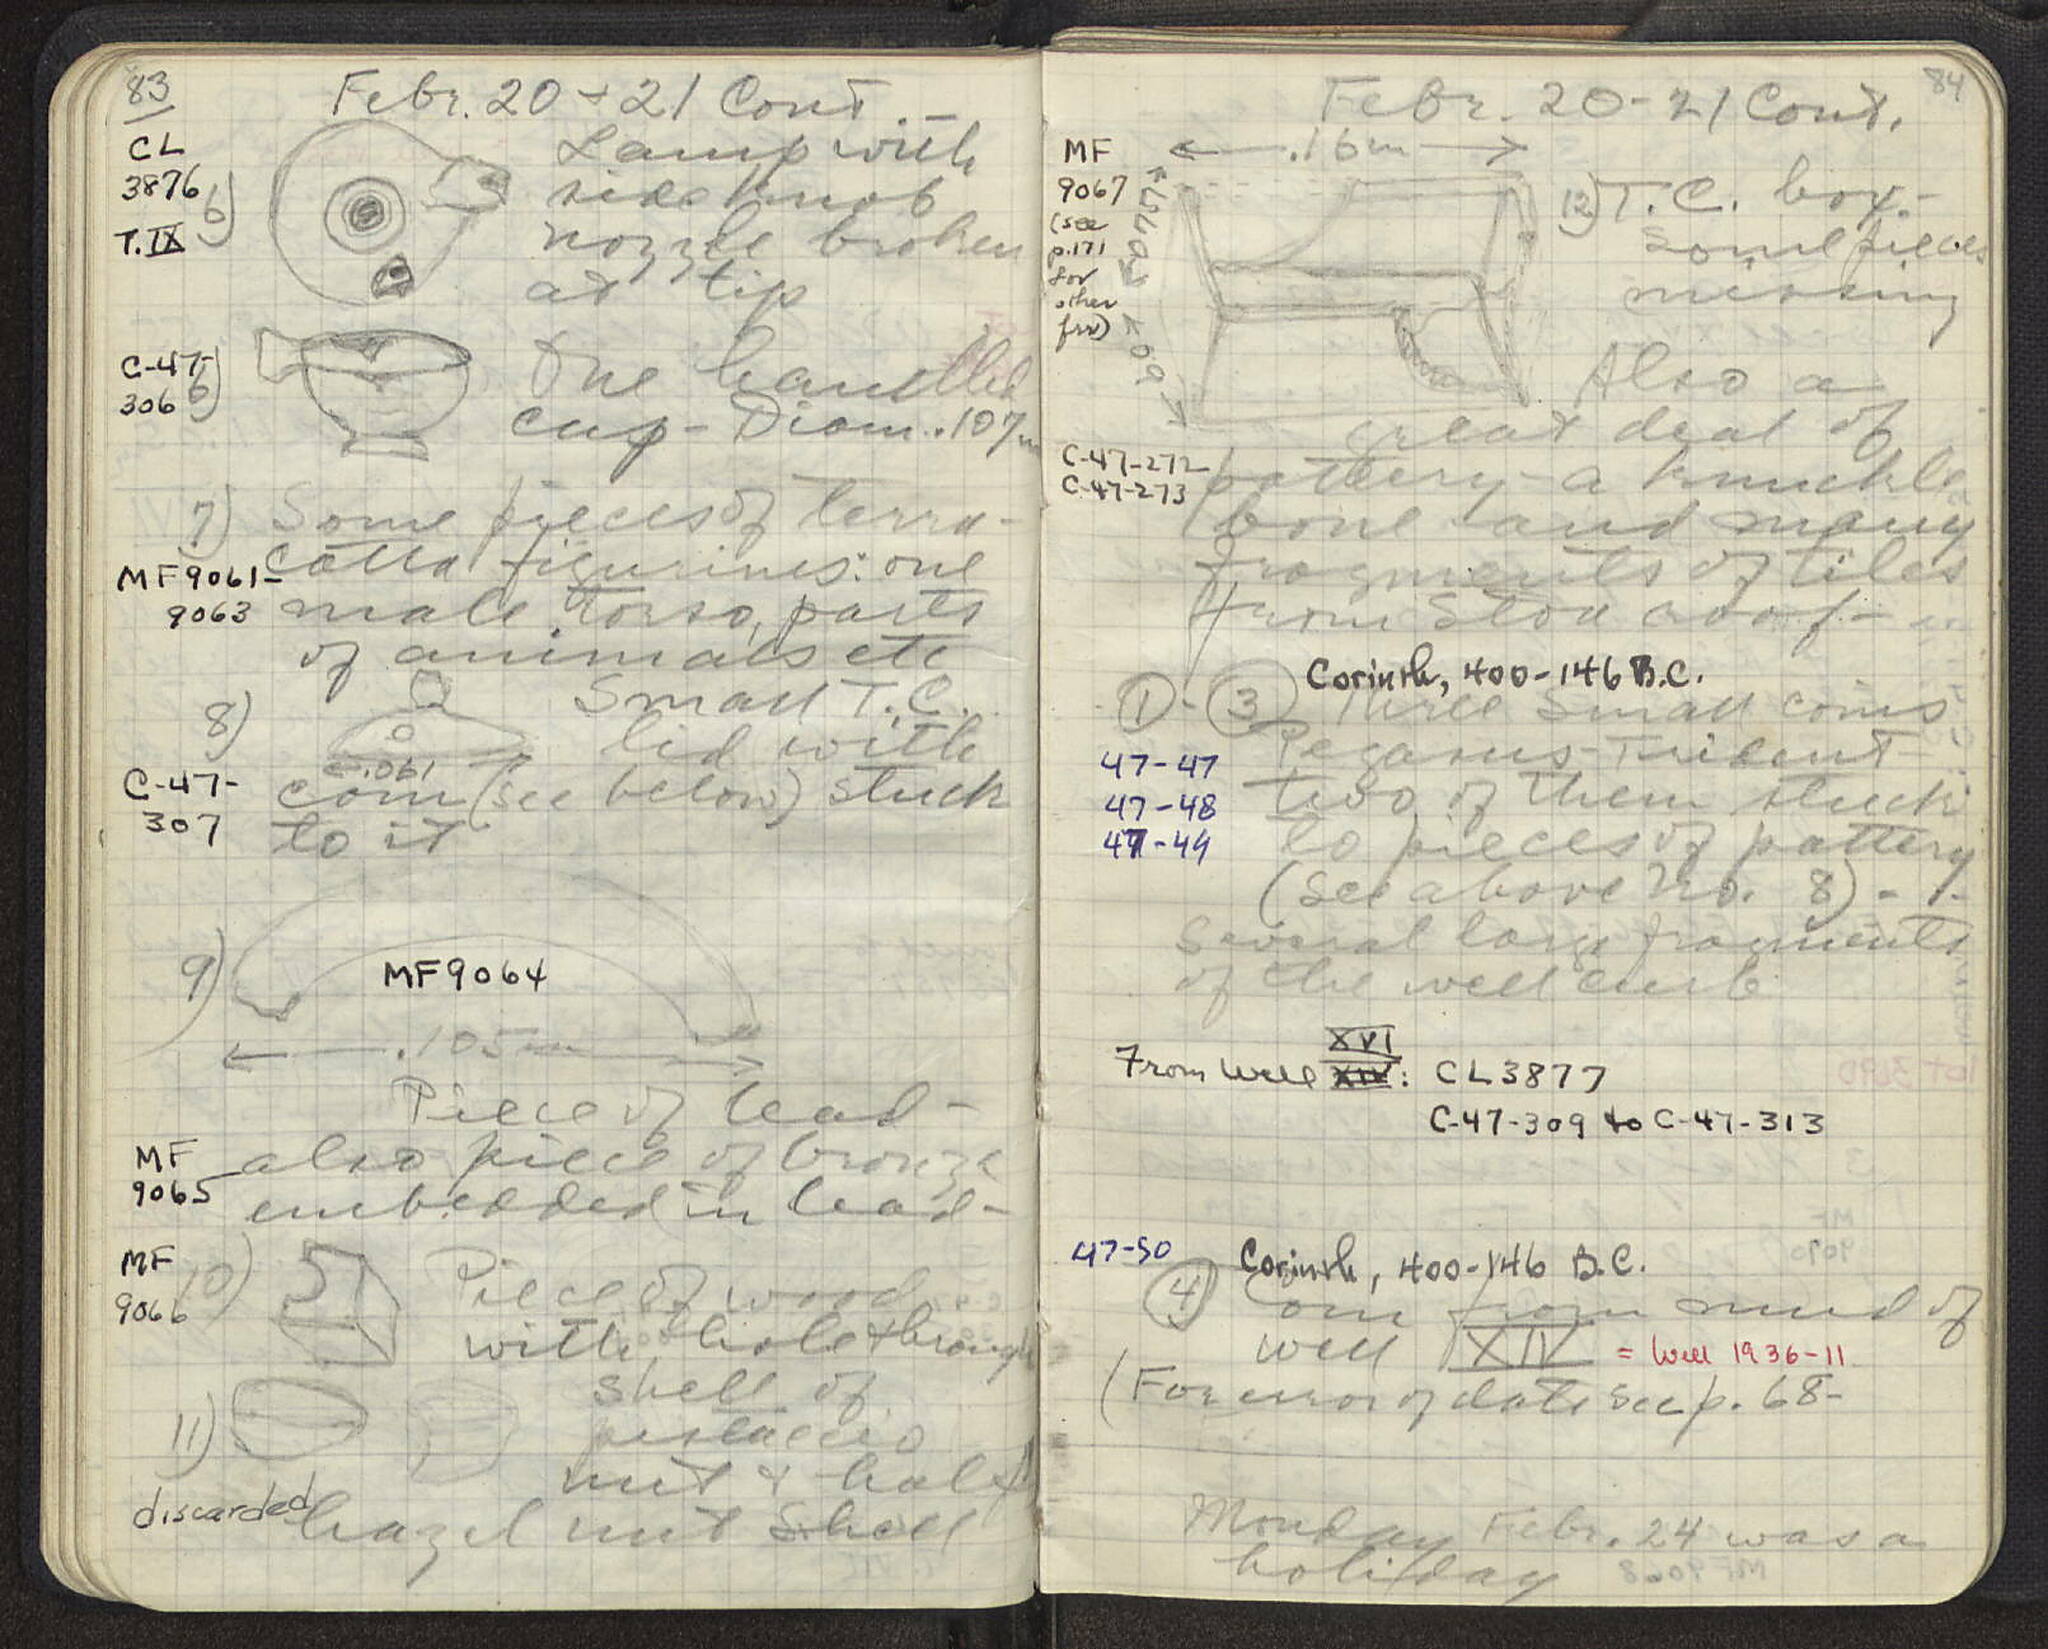 83
Febr. 20 + 21 Cont.
CL
3876
T. IX
6)
Lamp with
side knob
nozzle broken
at tip
C-47-
306
6)
One handled
cup - Diam. .107m
7) Some pieces of terra-
cotta figurines: one
MF9061-
9063
male torso, parts
of animals etc
8)
Small T.C.
lid with
.061
C-47-
307
coin (see below) stuck
to it
9)
MF9064
.105m
Piece of lead -
MF
9065
also piece of bronze
embedded in lead -
MF
9066
10)
Piece of wood
with hole through
11)
shell of
pistaccio
nut & half
discarded
hazel nut shell
84
Febr. 20 - 21 Cont.
MF
9067
(see
p.171
for
other
frr)
.16m
12) T.C. box. -
Some pieces
missing
Also a
great deal of
C-47-272
C-47-273
pottery - a knuckle
bone and many
fragments of tiles
from Stoa roof -
Corinth, 400-146 B.C.
1 - 3 Three small coins
47-47
47-48
47-49
Pegasus - Trident
two of them stuck
to pieces of pottery
(see above No. 8) -
Several large fragments
of the well curb
From Well XVI XIV: CL3877
C-47-309 to C-47-313
47-50
Corinth, 400-146 B.C.
4 Coin from mud of
well XIV = Well 1936-11
(For error of date see p. 68-
Monday Febr. 24 was a
holiday